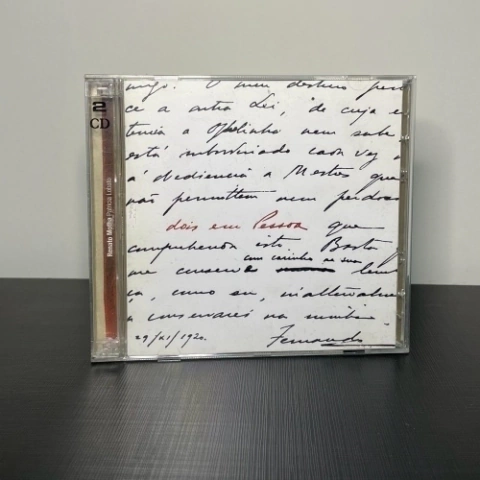 2
CD
Renato Motha Patricia Lobato
O meu destino per
ce a outra Lei, de cuja e
tencia a Ophelinha nem sabe
está subordinado cada vez
á obediencia a Mestres que
não permittem nem perdoam
dois em Pessoa que
comprehenda isto. Basta
com carinho na sua
me conserve lem
ça, como eu, inalteravelme
a conservarei na minha.
29/XI/1920.
Fernando